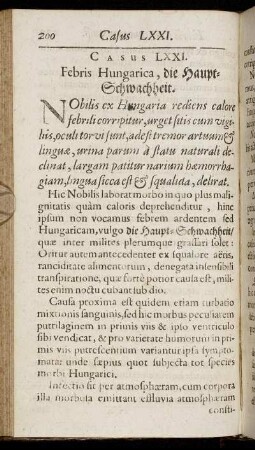 200 Casus LXXI.
CASUS LXXI.
Febris Hungarica, die Haupt-
Schwachheit.
NObilis ex Hungaria rediens calore
febrili corripitur, urget sitis cum vigi-
liis, oculi torvi sunt, adest tremor artuum &
linguæ, urina parum à statu naturali de-
clinat, largam patitur narium hæmorrha-
giam, lingua sicca est & squalida, delirat.
Hic Nobilis laborat morbo in quo plus mali-
gnitatis quàm caloris deprehenditur, hinc
ipsum non vocamus febrem ardentem sed
Hungaricam, vulgo die Haupt-Schwachheit/
quæ inter milites plerumque grassari solet:
Oritur autem antecedenter ex squalore aëris,
ranciditate alimentorum, denegata insensibili
transpiratione, quæ fortè potior causa est, mili-
tes enim noctu cubant sub dio.
Causa proxima est quidem etiam turbatio
mixtionis sanguinis, sed hic morbus peculiarem
putrilaginem in primis viis & ipso ventriculo
sibi vendicat, & pro varietate humorum in pri-
mis viis putrescentium variantur ipsa sympto-
mata: unde sæpius quot subjecta tot species
morbi Hungarici.
Infectio fit per atmosphæram, cum corpora
illa morbosa emittant effluvia atmosphæram
consti-